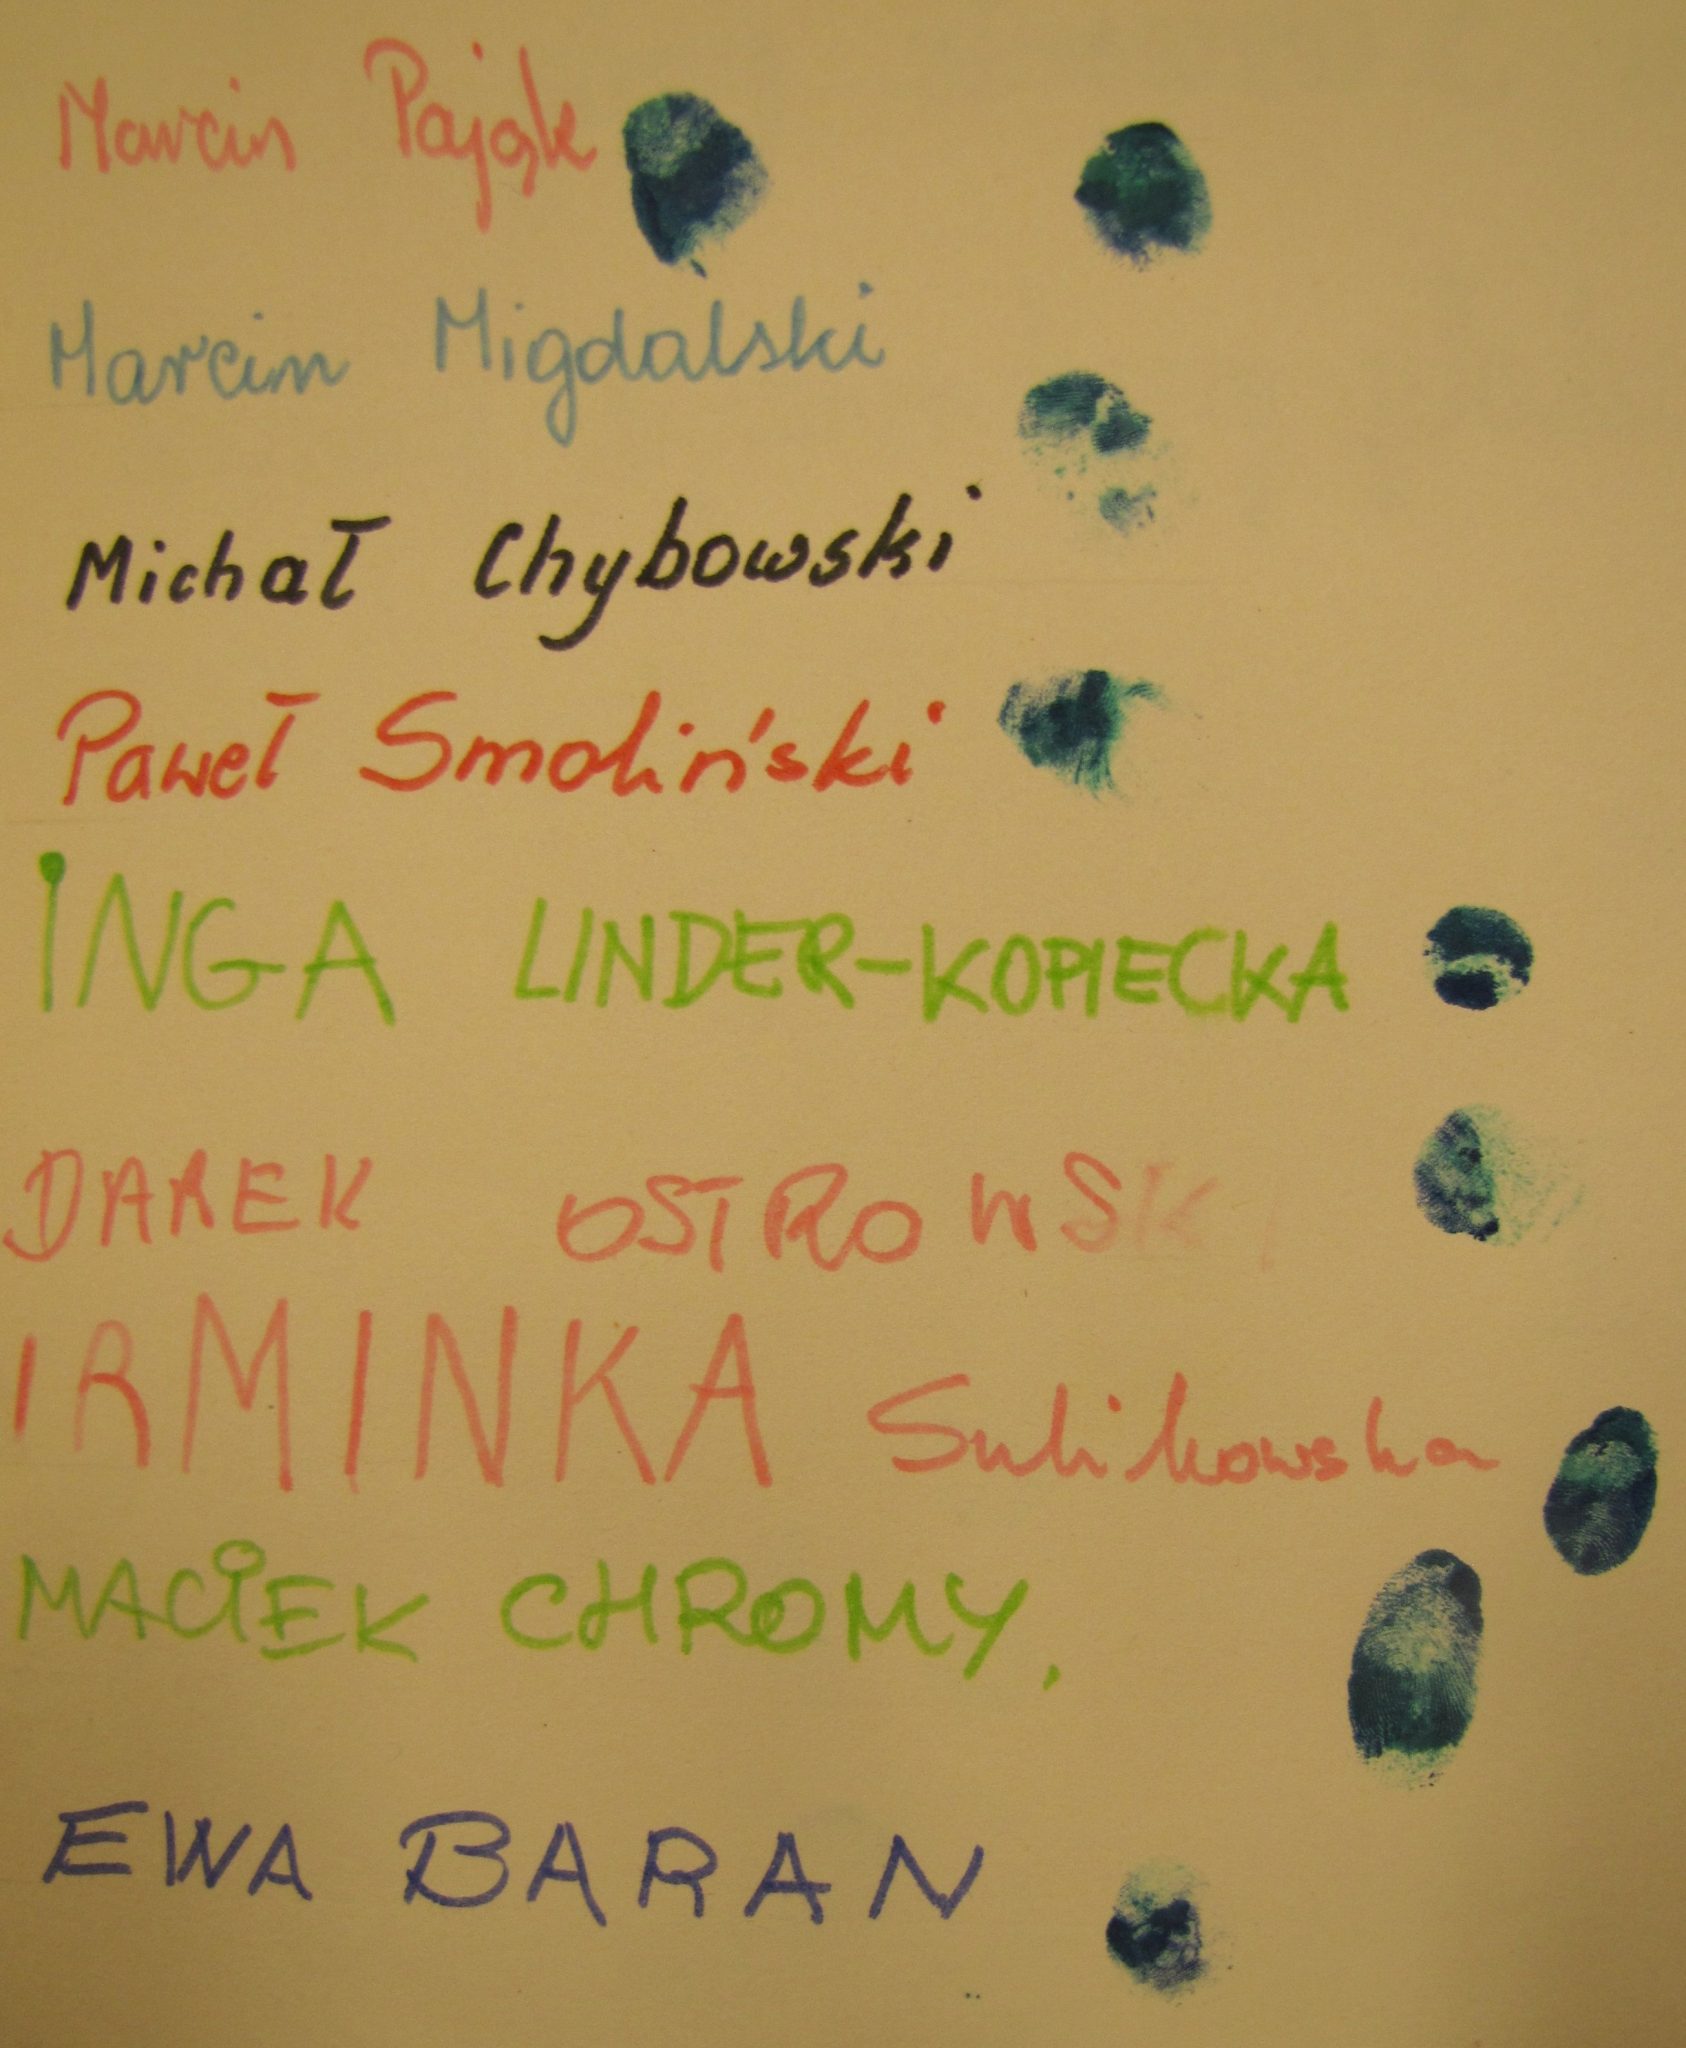 Marcin Pająk
Marcin Migdalski
Michał Chybowski
Paweł Smoliński
INGA LINDER-KOPIECKA
DAREK OSTROWSKI
IRMINKA Sulikowska
MACIEK CHROMY.
EWA BARAN